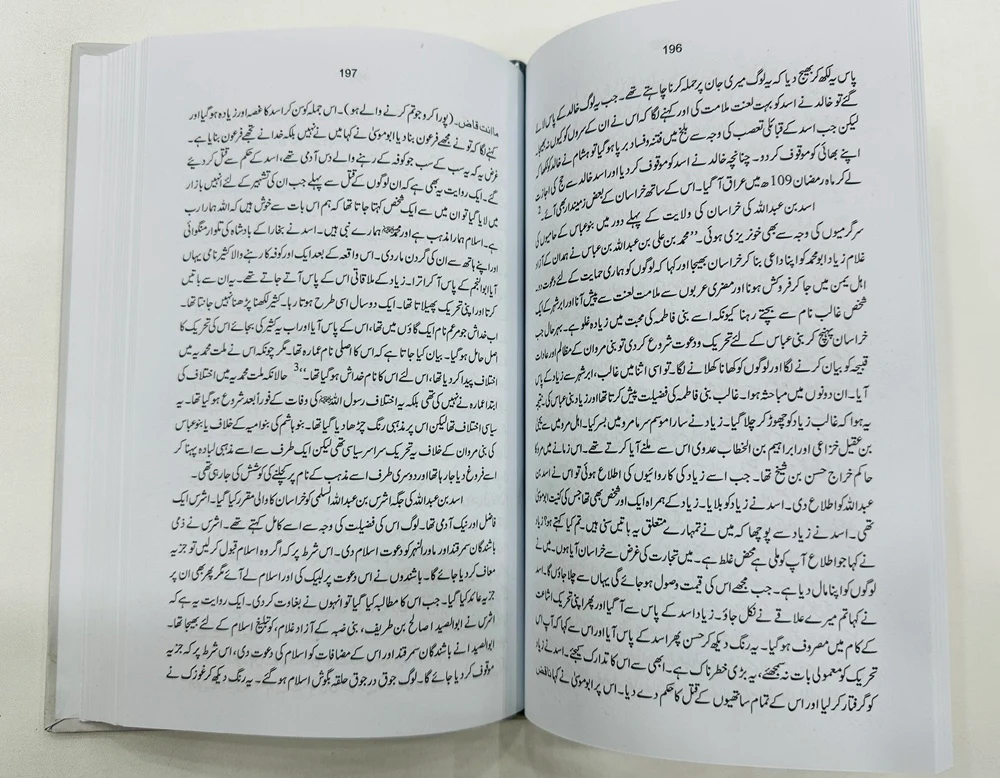 196
پاس یہ لکھ کر بھیج دیا کہ یہ لوگ میری جان پر حملہ کرنا چاہتے تھے۔ جب یہ لوگ خالد کے پاس لائے
گئے تو خالد نے اسد کو بہت لعنت ملامت کی اور کہنے لگا کہ اس نے ان کے سروں کو کیوں نہ بھیجا۔
لیکن جب اسد کے قبائلی تعصب کی وجہ سے بلخ میں فتنہ و فساد برپا ہو گیا تو ہشام نے خالد کو لکھا کہ
اپنے بھائی کو موقوف کر دو۔ چنانچہ خالد نے اسد کو موقوف کر دیا اور اسد خالد سے حج کی اجازت
لے کر ماہ رمضان 109ھ میں عراق آ گیا۔ اس کے ساتھ خراسان کے بعض زمیندار بھی آئے۔2
اسد بن عبداللہ کی خراسان کی ولایت کے پہلے دور میں بنو عباس کے حامیوں کی
سرگرمیوں کی وجہ سے بھی خونریزی ہوئی۔ ’’محمد بن علی بن عبداللہ بن عباس نے ہمدان کے آزاد
غلام زیاد ابو محمد کو اپنا داعی بنا کر خراسان بھیجا اور کہا کہ لوگوں کو ہماری حمایت کے لئے دعوت دو۔
اہل یمن میں جا کر فروکش ہونا اور مضری عربوں سے ملامت لعنت سے پیش آنا اور ابر شہر کے ایک
شخص غالب نام سے بچتے رہنا کیونکہ اسے بنی فاطمہ کی محبت میں زیادہ غلو ہے۔ بہر حال جب
خراسان پہنچ کر بنی عباس کے لئے تحریک و دعوت شروع کر دی تو بنی مروان کے مظالم اور عادات
قبیحہ کو بیان کرنے لگا اور لوگوں کو کھانا کھلانے لگا۔ تو اسی اثنا میں غالب، ابر شہر سے زیاد کے پاس
آیا۔ ان دونوں میں مباحثہ ہوا۔ غالب بنی فاطمہ کی فضیلت پیش کرتا تھا اور زیاد بنی عباس کی، نتیجہ
یہ ہوا کہ غالب زیاد کو چھوڑ کر چلا گیا۔ زیاد نے سارا موسم سرما مرو میں بسر کیا۔ اہل مرو میں سے یحییٰ
بن عقیل خزاعی اور ابراہیم بن الخطاب عدوی اس سے ملنے آیا کرتے تھے۔ اس زمانے میں مرو
حاکم خراج حسن بن شیخ تھا۔ جب اسے زیاد کی کارروائیوں کی اطلاع ہوئی تو اس نے اسد بن
عبداللہ کو اطلاع دی۔ اسد نے زیاد کو بلایا۔ زیاد کے ہمراہ ایک اور شخص بھی تھا جس کی کنیت ابو موسیٰ
تھی۔ اسد نے زیاد سے پوچھا کہ میں نے تمہارے متعلق یہ باتیں سنی ہیں۔ تم کیا کہتے ہو؟ زیاد
نے کہا جو اطلاع آپ کو ملی ہے محض غلط ہے۔ میں تجارت کی غرض سے خراسان آیا ہوں۔ میں نے
لوگوں کو اپنا مال دیا ہے۔ جب مجھے اس کی قیمت وصول ہو جائے گی یہاں سے چلا جاؤں گا۔ اسد
نے کہا تم میرے علاقے سے نکل جاؤ۔ زیاد اسد کے پاس سے آ گیا اور پھر اپنی تحریک اشاعت
کے کام میں مصروف ہو گیا۔ یہ رنگ دیکھ کر حسن پھر اسد کے پاس آیا اور اس سے کہا کہ آپ اس
تحریک کو معمولی بات نہ سمجھئے، یہ بڑی خطرناک ہے۔ ابھی سے اس کا تدارک کیجئے۔ اسد نے زیاد
کو گرفتار کر لیا اور اس کے تمام ساتھیوں کے قتل کا حکم دے دیا۔ اس پر ابو موسیٰ نے کہا فاقض
197
ما انت قاض۔ (پورا کرو جو تم کرنے والے ہو)۔ اس جملہ کو سن کر اسد کا غصہ اور زیادہ ہو گیا اور
کہنے لگا کہ تو نے مجھے فرعون بنا دیا ابو موسیٰ نے کہا میں نے نہیں بلکہ خدا نے تجھے فرعون بنایا ہے۔
غرض یہ کہ یہ سب کے سب جو کوفہ کے رہنے والے دس آدمی تھے، اسد کے حکم سے قتل کر دیئے
گئے۔ ایک روایت یہ بھی ہے کہ ان لوگوں کے قتل سے پہلے جب ان کی تشہیر کے لئے انہیں بازار
میں لایا گیا تو ان میں سے ایک شخص کہتا جاتا تھا کہ ہم اس بات سے خوش ہیں کہ اللہ ہمارا رب
ہے۔ اسلام ہمارا مذہب ہے اور محمدﷺ ہمارے نبی ہیں۔ اسد نے بخارا کے بادشاہ کی تلوار منگوائی
اور اپنے ہاتھ سے ان کی گردن مار دی۔ اس واقعہ کے بعد ایک اور کوفہ کا رہنے والا کثیر نامی یہاں
آیا ابو النجم کے پاس آ کر اترا۔ زیاد کے ملاقاتی اس کے پاس آتے جاتے تھے۔ یہ ان سے باتیں
کرتا اور اپنی تحریک پھیلاتا تھا۔ ایک دو سال اسی طرح ہوتا رہا۔ کثیر لکھنا پڑھنا نہیں جانتا تھا۔
اب خداش جو مرغم نام ایک گاؤں میں تھا، اس کے پاس آیا اور اب یہ کثیر کی بجائے اس کی تحریک کا
اصل حامل ہو گیا۔ بیان کیا جاتا ہے کہ اس کا اصلی نام عمارہ تھا۔ مگر چونکہ اس نے ملت محمدیہ میں
اختلاف پیدا کر دیا تھا، اس لئے اس کا نام خداش ہو گیا تھا۔‘‘3 حالانکہ ملت محمدیہ میں اختلاف کی
ابتدا عمارہ نے نہیں کی تھی بلکہ یہ اختلاف رسول اللہﷺ کی وفات کے فوراً بعد شروع ہو گیا تھا۔ یہ
سیاسی اختلاف تھا لیکن اس پر مذہبی رنگ چڑھا دیا گیا تھا۔ بنو ہاشم کی بنو امیہ کے خلاف یا بنو عباس
کی بنی مروان کے خلاف یہ تحریک سراسر سیاسی تھی لیکن ایک طرف سے اسے مذہبی لبادہ پہنا کر
اسے فروغ دیا جا رہا تھا اور دوسری طرف اسے مذہب کے نام پر کچلنے کی کوشش کی جا رہی تھی۔
اسد بن عبداللہ کی جگہ اشرس بن عبداللہ السلمی کو خراسان کا والی مقرر کیا گیا۔ اشرس ایک
فاضل اور نیک آدمی تھا۔ لوگ اس کی فضیلت کی وجہ سے اسے کامل کہتے تھے۔ اشرس نے ذمی
باشندگان سمرقند اور ماورالنہر کو دعوت اسلام دی۔ اس شرط پر کہ اگر وہ اسلام قبول کر لیں تو جزیہ
معاف کر دیا جائے گا۔ باشندوں نے اس دعوت پر لبیک کی اور اسلام لے آئے مگر پھر بھی ان پر
جزیہ عائد کیا گیا۔ جب اس کا مطالبہ کیا گیا تو انہوں نے بغاوت کر دی۔ ایک روایت یہ ہے کہ
اشرس نے ابو الصیدا صالح بن طریف، بنی ضبہ کے آزاد غلام، کو تبلیغ اسلام کے لئے بھیجا تھا۔
ابو الصیدا نے باشندگان سمرقند اور اس کے مضافات کو اسلام کی دعوت دی، اس شرط پر کہ جزیہ
موقوف کر دیا جائے گا۔ لوگ جوق در جوق حلقہ بگوش اسلام ہو گئے۔ یہ رنگ دیکھ کر غوزک نے